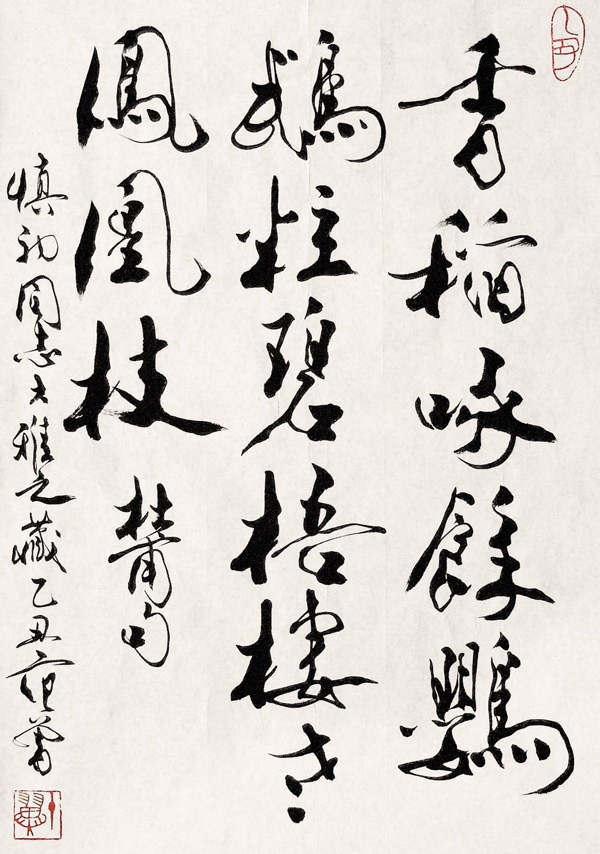 香稻啄餘鸚
鵡粒碧梧棲老
鳳凰枝 杜甫句
慎初同志大雅之藏乙丑范曾
十翼